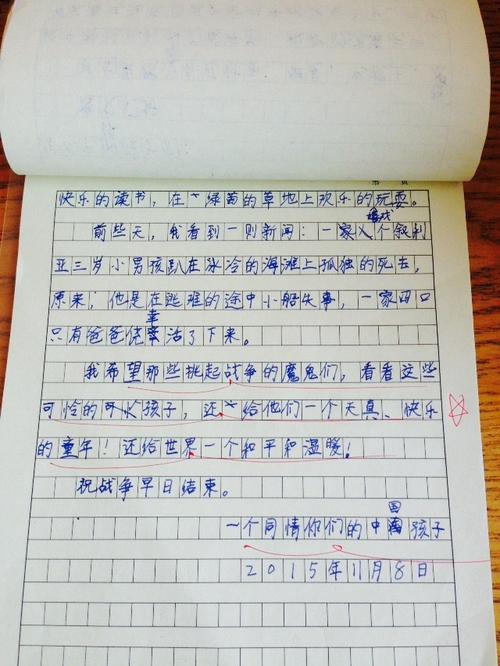 快乐的读书，在绿茵的草地上欢乐的玩耍。
前些天，我看到一则新闻：一家人个叙利
亚三岁小男孩趴在冰冷的海滩上孤独的死去，
原来，他是在逃难的途中小船失事，一家四口
只有爸爸侥幸活了下来。
我希望那些挑起战争的魔鬼们，看看这些
可怜的孩子，还给他们一个天真、快乐
的童年！还给世界一个和平和温暖！
祝战争早日结束。
一个同情你们的中国孩子
2015年11月8日